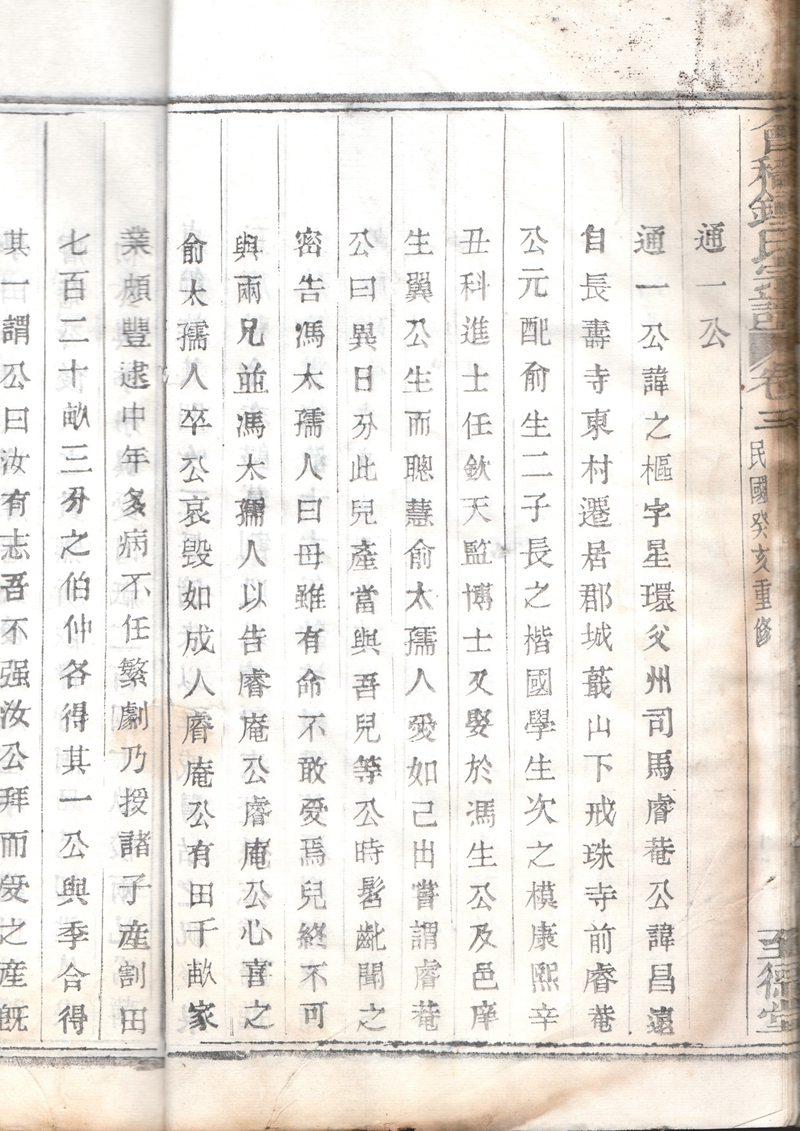 會稽鍾氏宗譜 卷三 民國癸亥重修
通一公
通一公諱之樞字星環父州司馬睿菴公諱昌遠
自長壽寺東村遷居郡城蕺山下戒珠寺前睿菴
公元配俞生二子長之楷國學生次之模康熙辛
丑科進士任欽天監博士又娶於馮生公及邑庠
生翼公生而聰慧俞太孺人愛如己出嘗謂睿菴
公曰異日分此兒產當與吾兒等公時髫齔聞之
密告馮太孺人曰母雖有命不敢受焉兒終不可
與兩兄並馮太孺人以告睿庵公睿庵公心喜之
俞太孺人卒公哀毀如成人睿庵公有田千畝家
業頗豐逮中年多病不任繁劇乃授諸子產割田
七百二十畝三分之伯仲各得其一公與季合得
其一謂公曰汝有志吾不强汝公拜而受之產旣